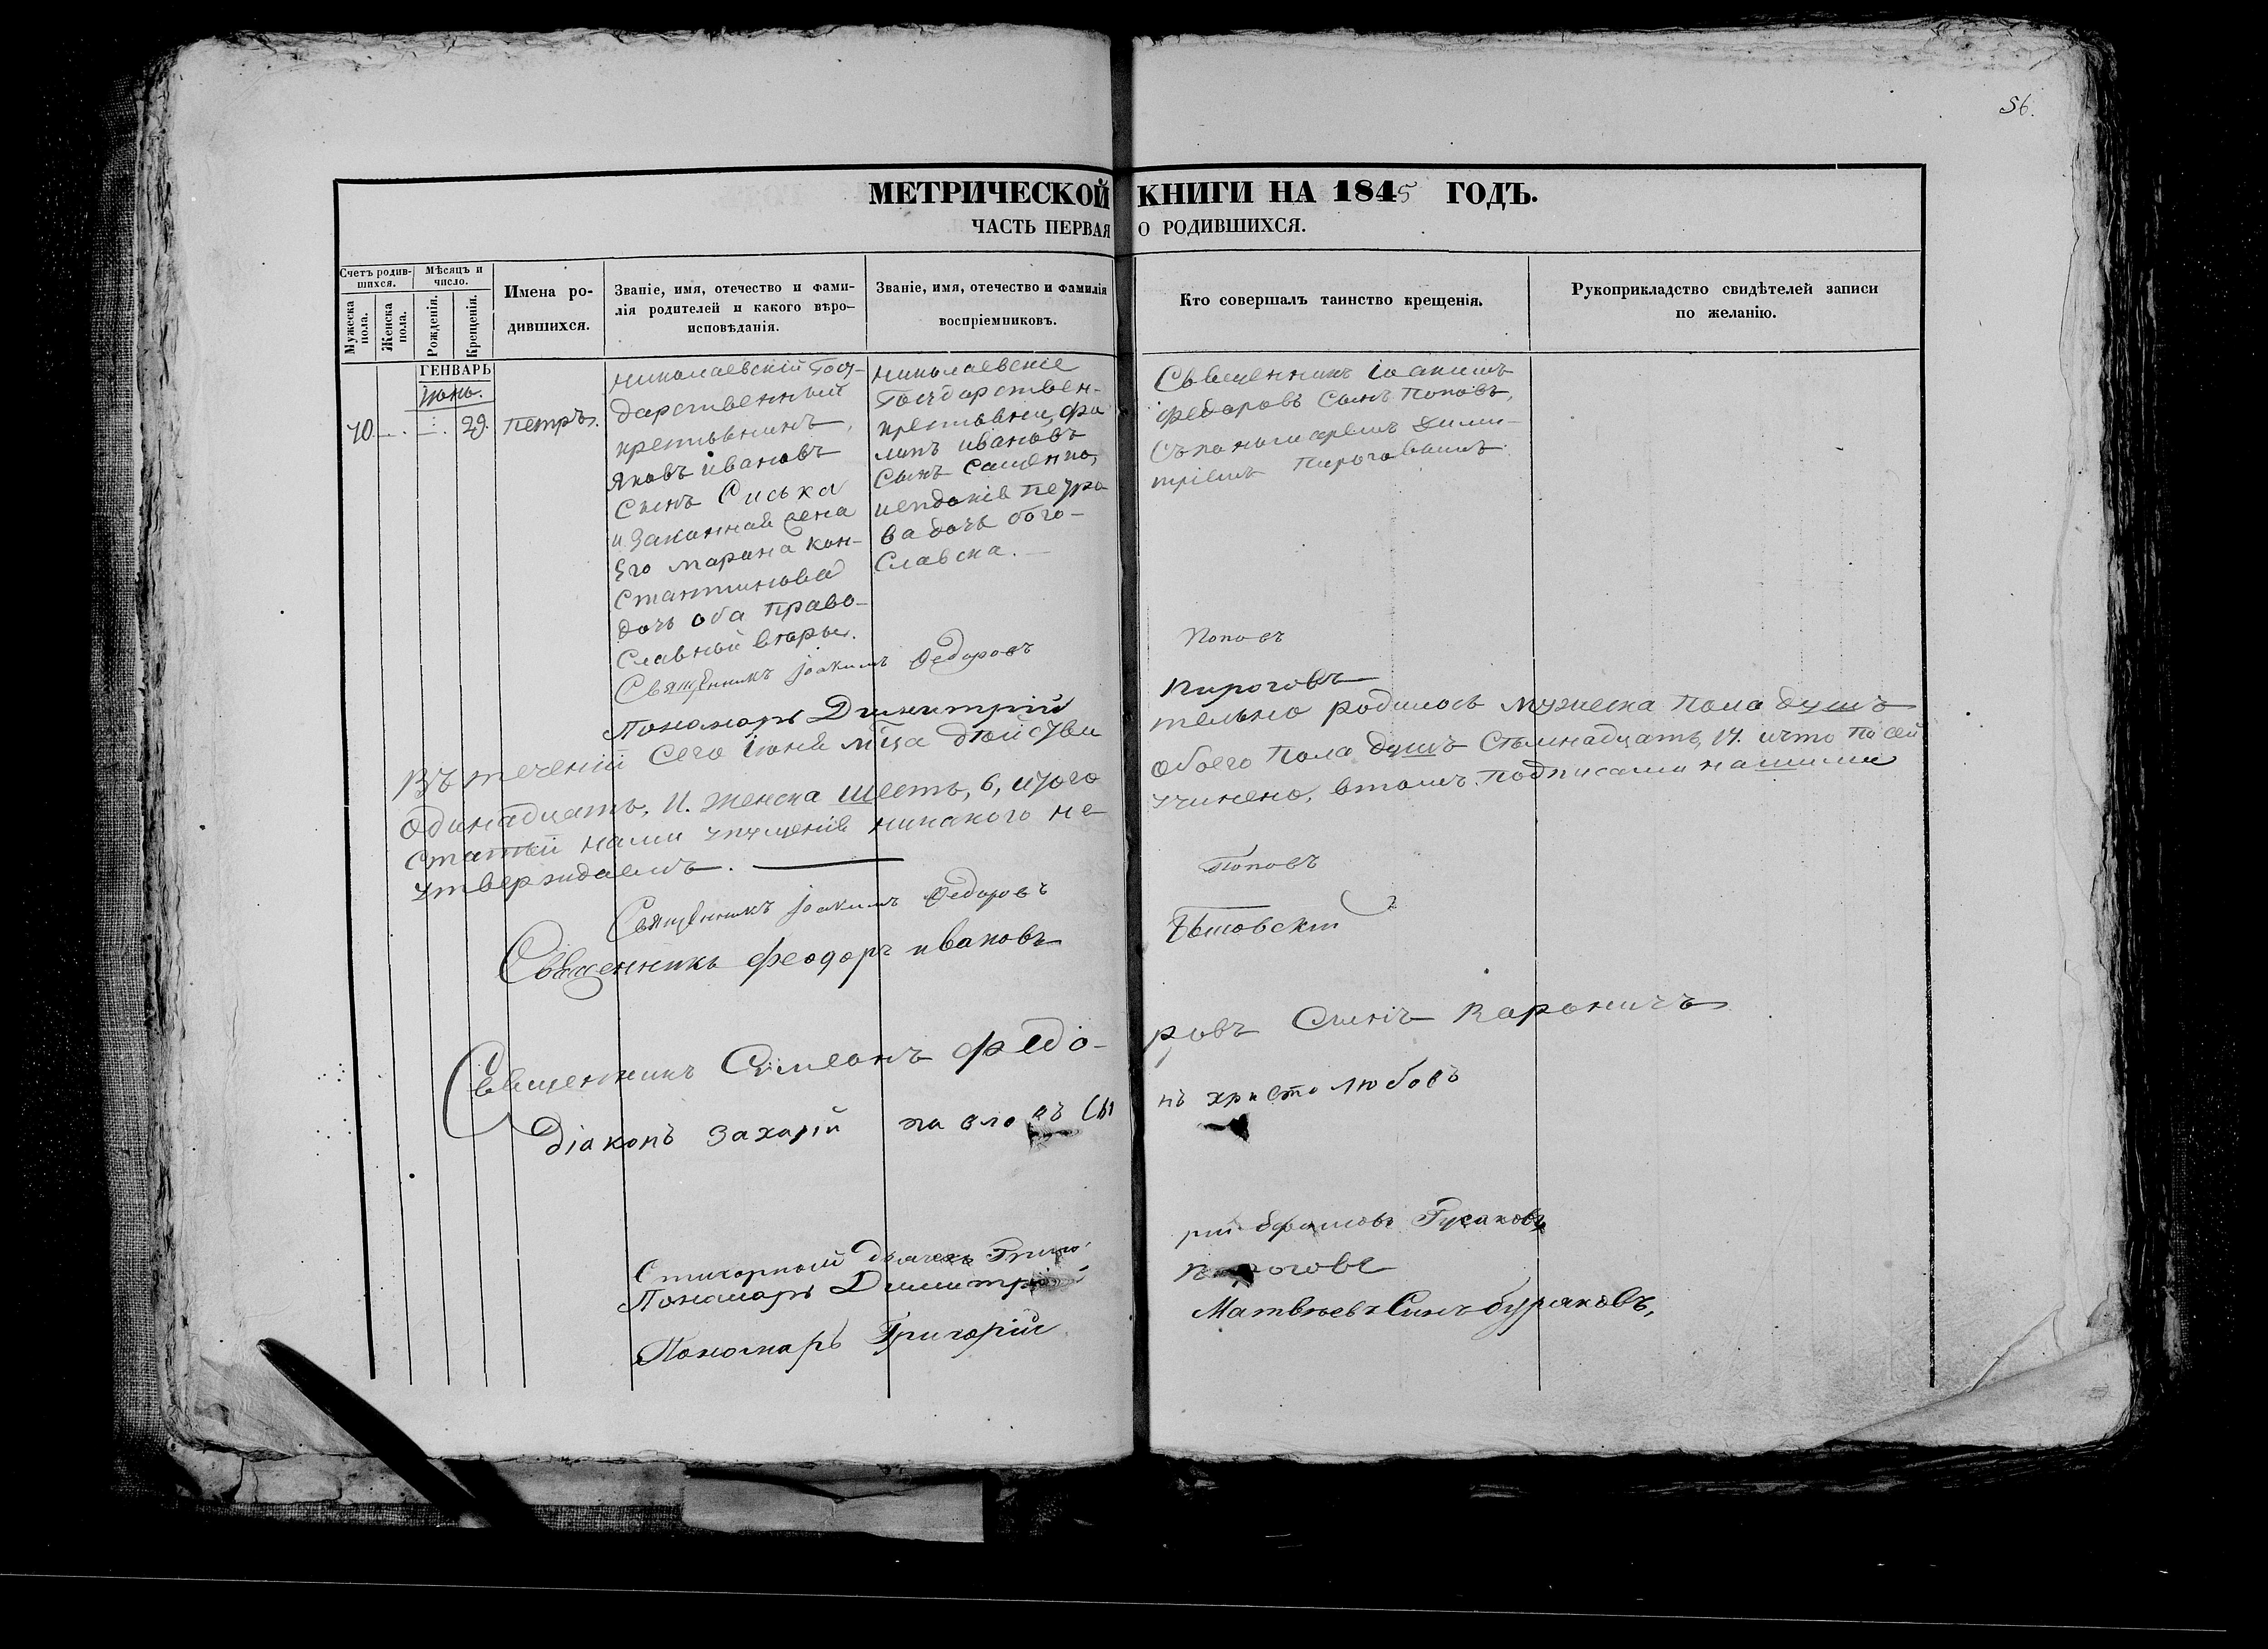 56.
МЕТРИЧЕСКОЙ КНИГИ НА 1845 ГОДЪ.
ЧАСТЬ ПЕРВАЯ О РОДИВШИХСЯ.
Счетъ родив-
шихся.
Мужеска
пола.
Женска
пола.
Мѣсяцъ и
число.
Рожденія.
Крещенія.
Имена ро-
дившихся.
Званіе, имя, отечество и фами-
лія родителей и какого вѣро-
исповѣданія.
Званіе, имя, отечество и фамилія
воспріемниковъ.
Кто совершалъ таинство крещенія.
Рукоприкладство свидѣтелей записи
по желанію.
ГЕНВАРЬ
Іюнь.
40
29.
Петръ.
Николаевскій Госу-
дарственный
крестьянинъ,
Яковъ Ивановъ
Сынъ Сиська
и Законная жена
Его Марина Кон-
стантинова
дочь оба Право-
славной вѣры.
Николаевскіе
Государствен-
крестьяни, Фи
липъ Ивановъ
Сынъ Сащенко,
Петро
ва дочь Бого-
славска.
Священникъ Іоакимъ
Федоровъ Сынъ Поповъ,
Съ пономаремъ Дими-
тріемъ Пироговымъ.
Священникъ Іоакимъ Федоровъ Поповъ
Пономарь Димитрій Пироговъ
Въ теченіи Сего Іюня м҃ца дѣйстви тельно родилось мужеска пола душъ
Одинадцать, 11. Женска шесть, 6, итого обоего пола душъ Семнадцать, 17. и что по сей
Статьи нами упущенія никакого не учинено, втомъ подписами нашими
утверждаемъ.
Священникъ Іоакимъ Федоровъ Поповъ
Священникъ Феодоръ Ивановъ
Священникъ Симеонъ Федо- ровъ Сынъ Кароничъ
Діаконъ Захарій Павловъ Сы нъ Христолюбовъ
Стихарный Дьячекъ Григо рій Ефимовъ Гусаковъ
Пономарь Димитрій Пироговъ
Пономарь Григорій Матвѣевъ Сынъ Буряковъ,